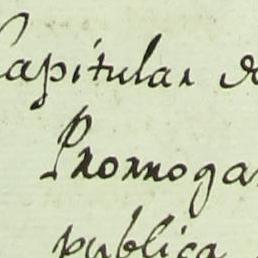 Capitular de
Prorrogar
publica